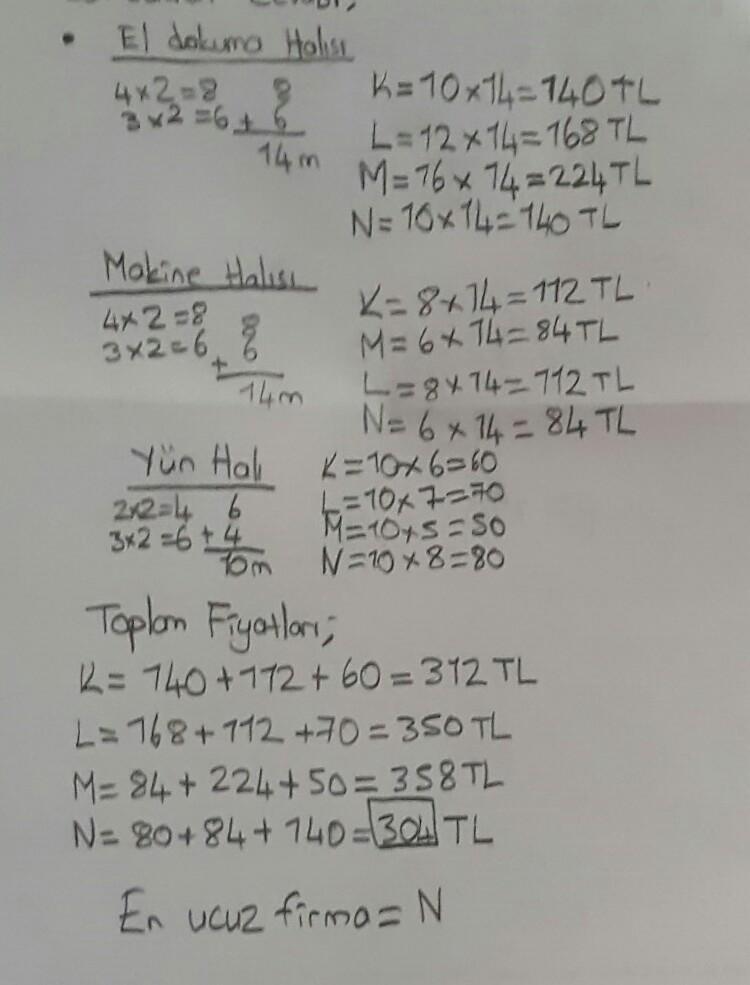 • El dokuma Halısı
4x2=8 8
3x2=6 + 6
14m
K=10x14=140TL
L=12x14=168 TL
M=16x14=224TL
N=10x14=140 TL
Makine Halısı
4x2=8 8
3x2=6 + 6
14m
K=8x14=112 TL
M=6x14=84TL
L=8x14=112 TL
N=6x14=84 TL
Yün Halı
2x2=4 6
3x2=6 + 4
10m
K=10x6=60
L=10x7=70
M=10x5=50
N=10x8=80
Toplam Fiyatları;
K= 140+112+60=312 TL
L= 168+112+70=350 TL
M= 84+224+50=358TL
N= 80+84+140=304 TL
En ucuz firma= N